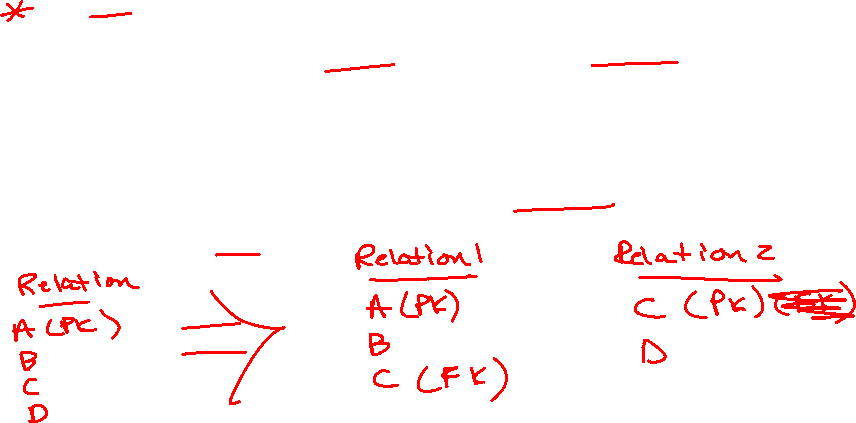 *
Relation
A (PK)
B
C
D
Relation 1
A (PK)
B
C (FK)
Relation 2
C (PK)
D